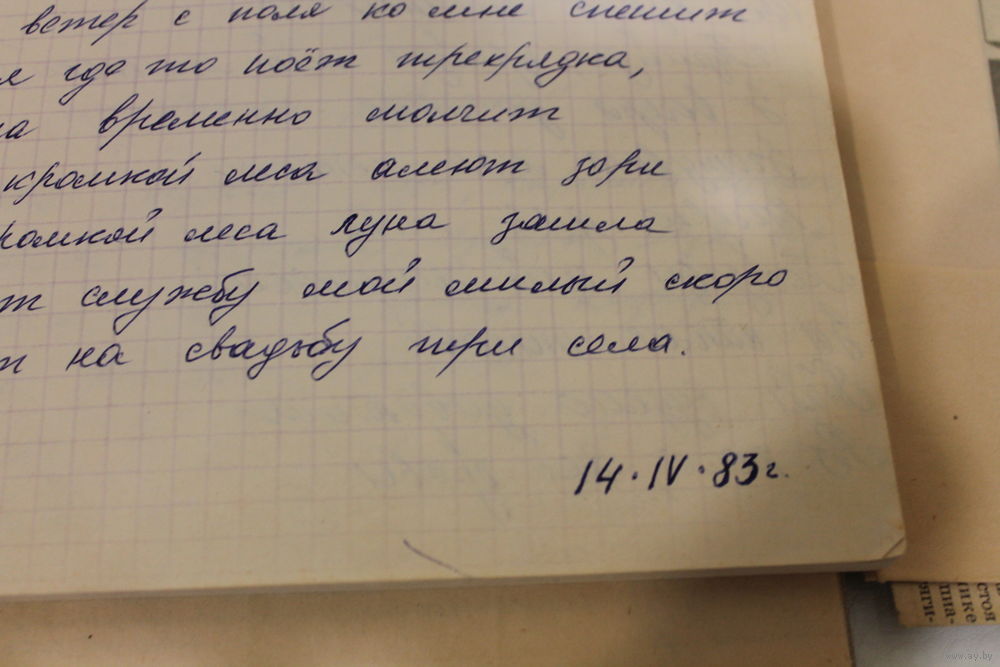 ветер с поля ко мне спешит
я где то поёт трехрядка,
на временно молчит
кромкой леса алеют зори
ромкой леса луна зашла
т службу мой милый скоро
т на свадьбу три села.
14.IV.83г.
стоя
нике
ппа-
яги-
www.ay.by